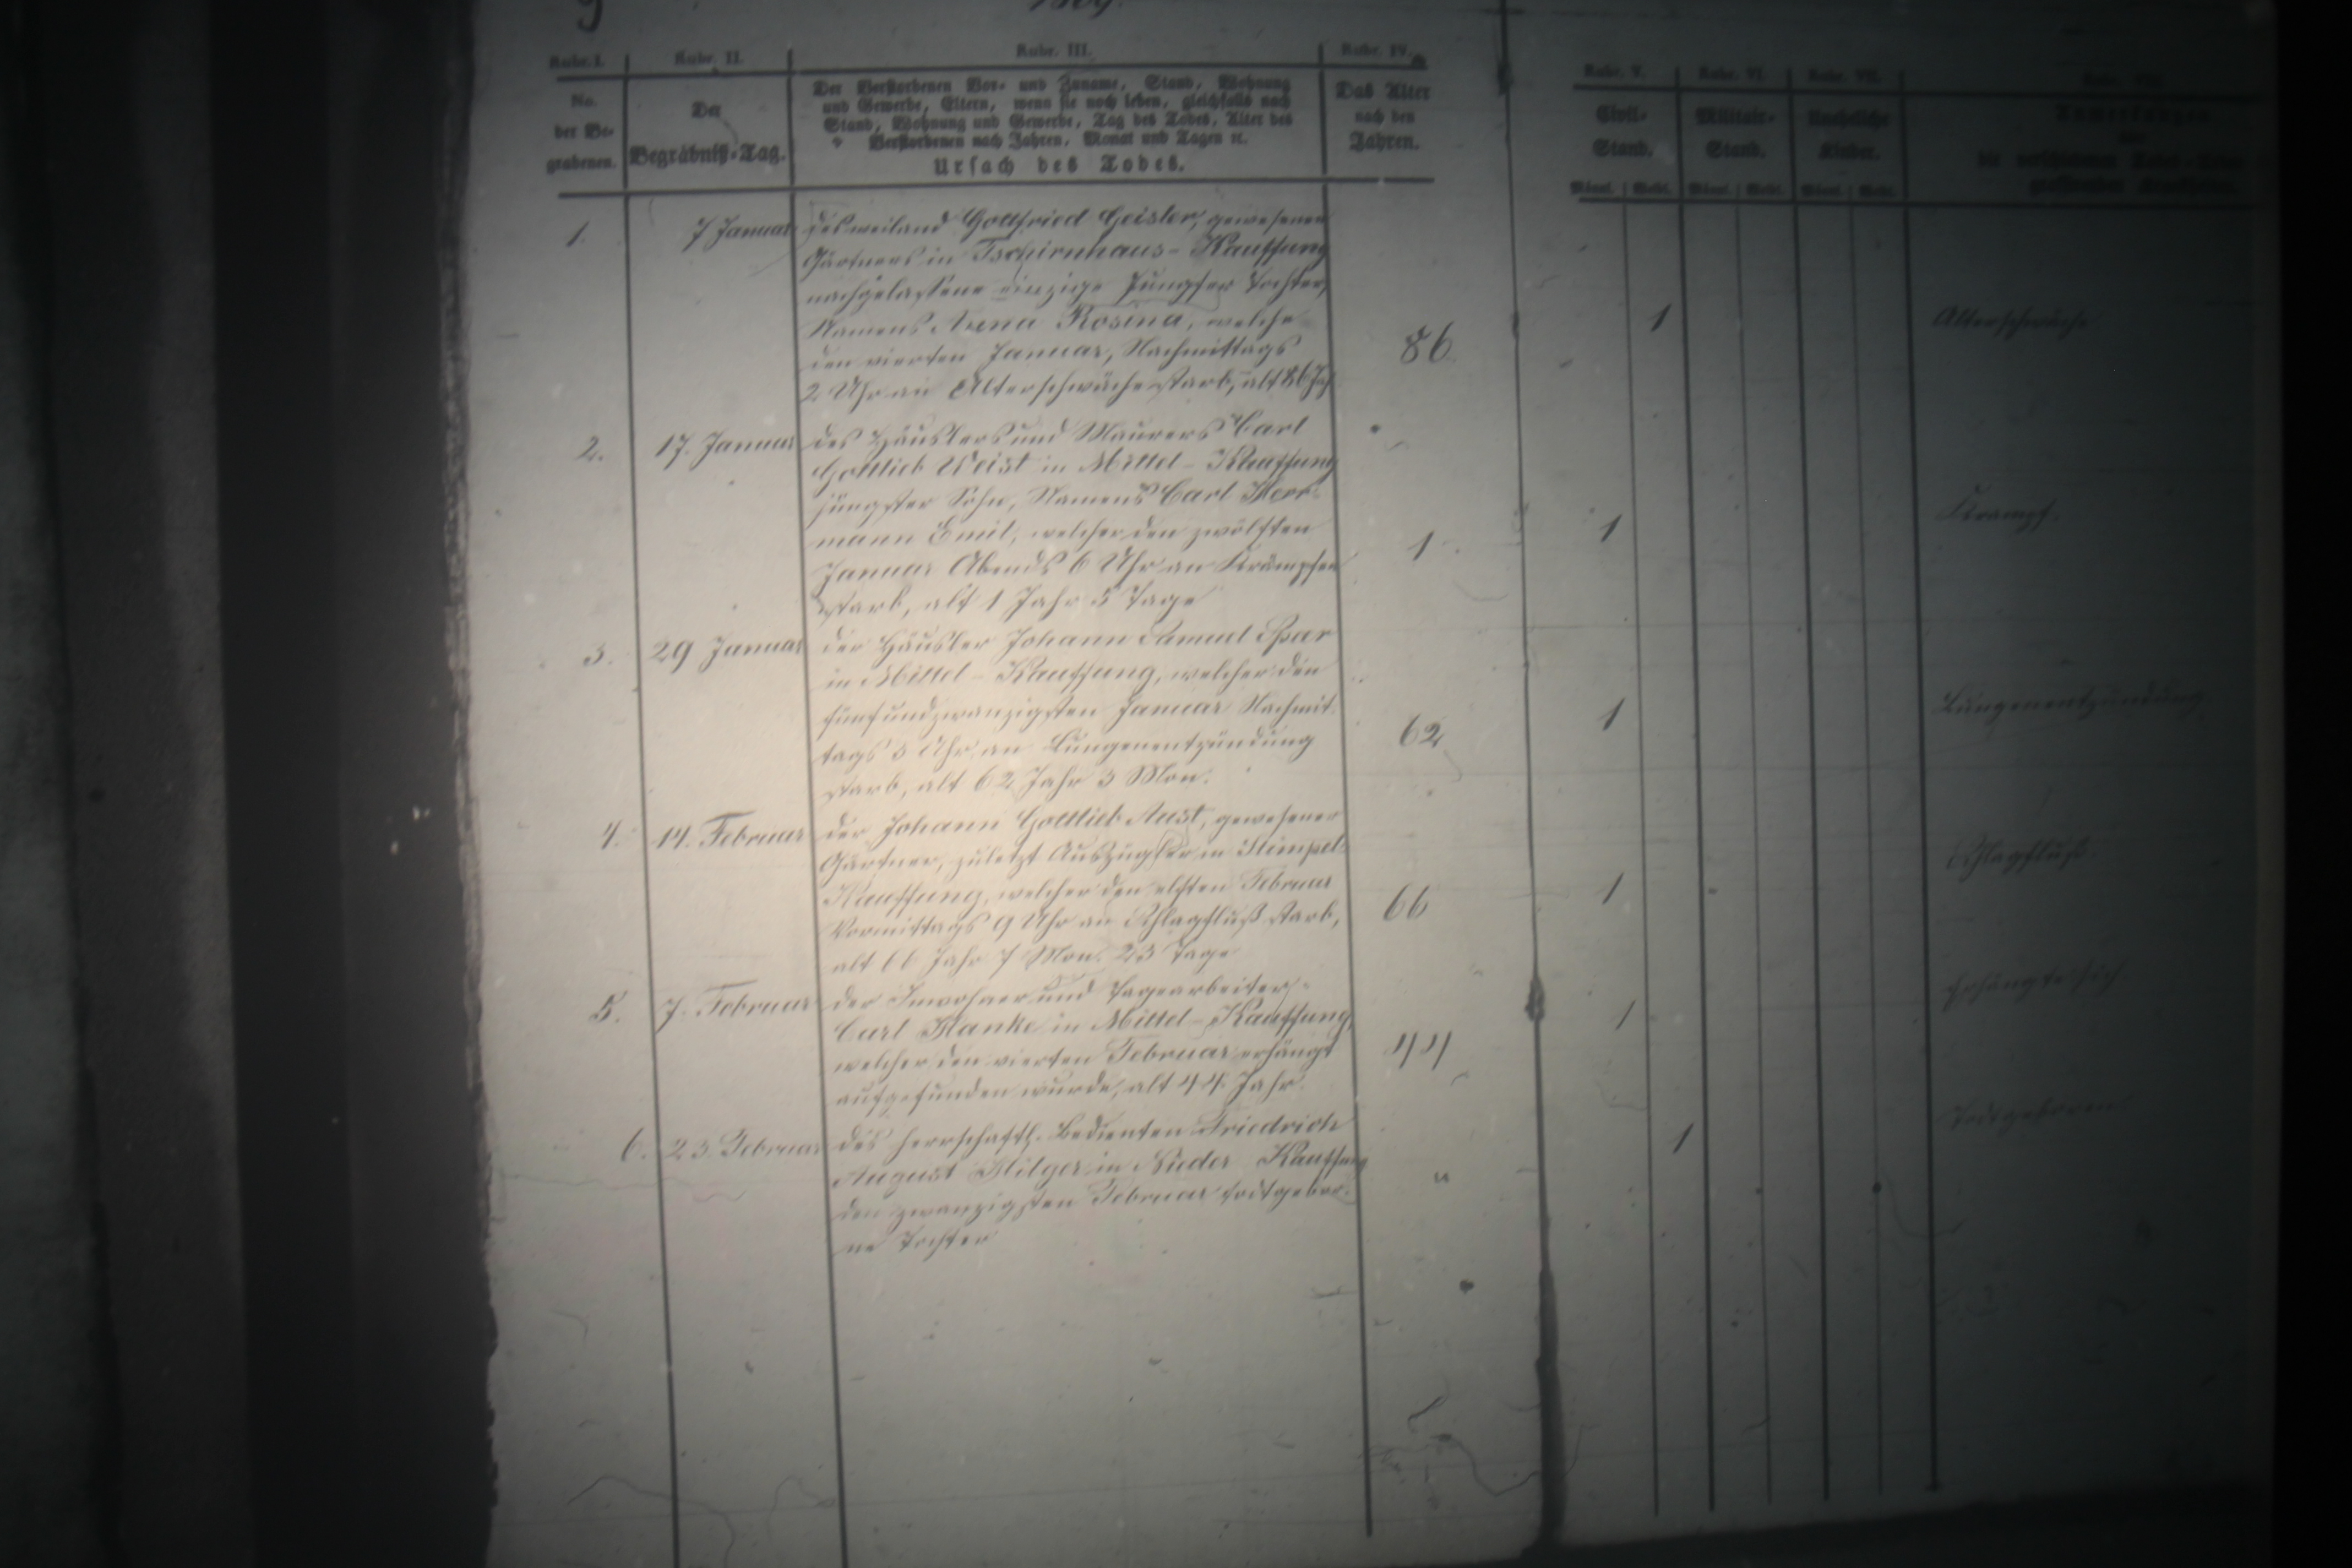 Rubr. I. Rubr. II. Rubr. III. Rubr. IV. Rubr. V. Rubr. VI. Rubr. VII.
No.
der Be-
grabenen.
Der
Begräbniß-Tag.
Der Verstorbenen Vor- und Zuname, Stand, Wohnung
und Gewerbe, Eltern, wenn sie noch leben, gleichfalls nach
Stand, Wohnung und Gewerbe, Tag des Todes, Alter des
Verstorbenen nach Jahren, Monat und Tagen ꝛc.
Ursach des Todes.
Das Alter
nach den
Jahren.
Civil-
Stand.
Militair-
Stand.
Uneheliche
Kinder.
Männl. Weibl. Männl. Weibl. Männl. Weibl.
1. 7 Januar
des weiland Gottfried Geisler, gewesenen
Gärtners in Tschirnhaus-Kauffung
nachgelassene einzige Jungfer Tochter,
Namens Anna Rosina, welche
den vierten Januar, Nachmittags
2 Uhr an Alterschwäche starb, alt 86 Jah
86 1 Alterschwäche
2. 17. Januar
des Häuslers und Maurers Carl
Gottlieb Weist in Mittel-Kauffung
jüngster Sohn, Namens Carl Herr-
mann Emil, welcher den zwölften
Januar Abends 6 Uhr an Krämpfen
starb, alt 1 Jahr 5 Tage
1 1 Krampf.
3. 29 Januar
der Häusler Johann Samuel
in Mittel-Kauffung, welcher den
fünfundzwanzigsten Januar Nachmit
tags 3 Uhr an Lungenentzündung
starb, alt 62 Jahr 3 Mon.
62 1 Lungenentzündung
4. 14. Februar
der Johann Gottlieb Aust, gewesener
Gärtner, zuletzt Auszügler in Stimpel-
Kauffung, welcher den elften Februar
Vormittags 9 Uhr an Schlagfluß starb,
alt 66 Jahr 7 Mon. 23 Tage
66 1 Schlagfluß
5. 7. Februar
der Inwohner und Tagearbeiter
Carl Hanke in Mittel-Kauffung,
welcher den vierten Februar erhängt
aufgefunden wurde, alt 44 Jahr.
44 1 Erhängte sich
6. 23 Februar
des herrschaftl. Bedienten Friedrich
August Hilger in Nieder Kauffung
den zwanzigsten Februar todtgebor-
ne Tochter
1 Todtgeboren